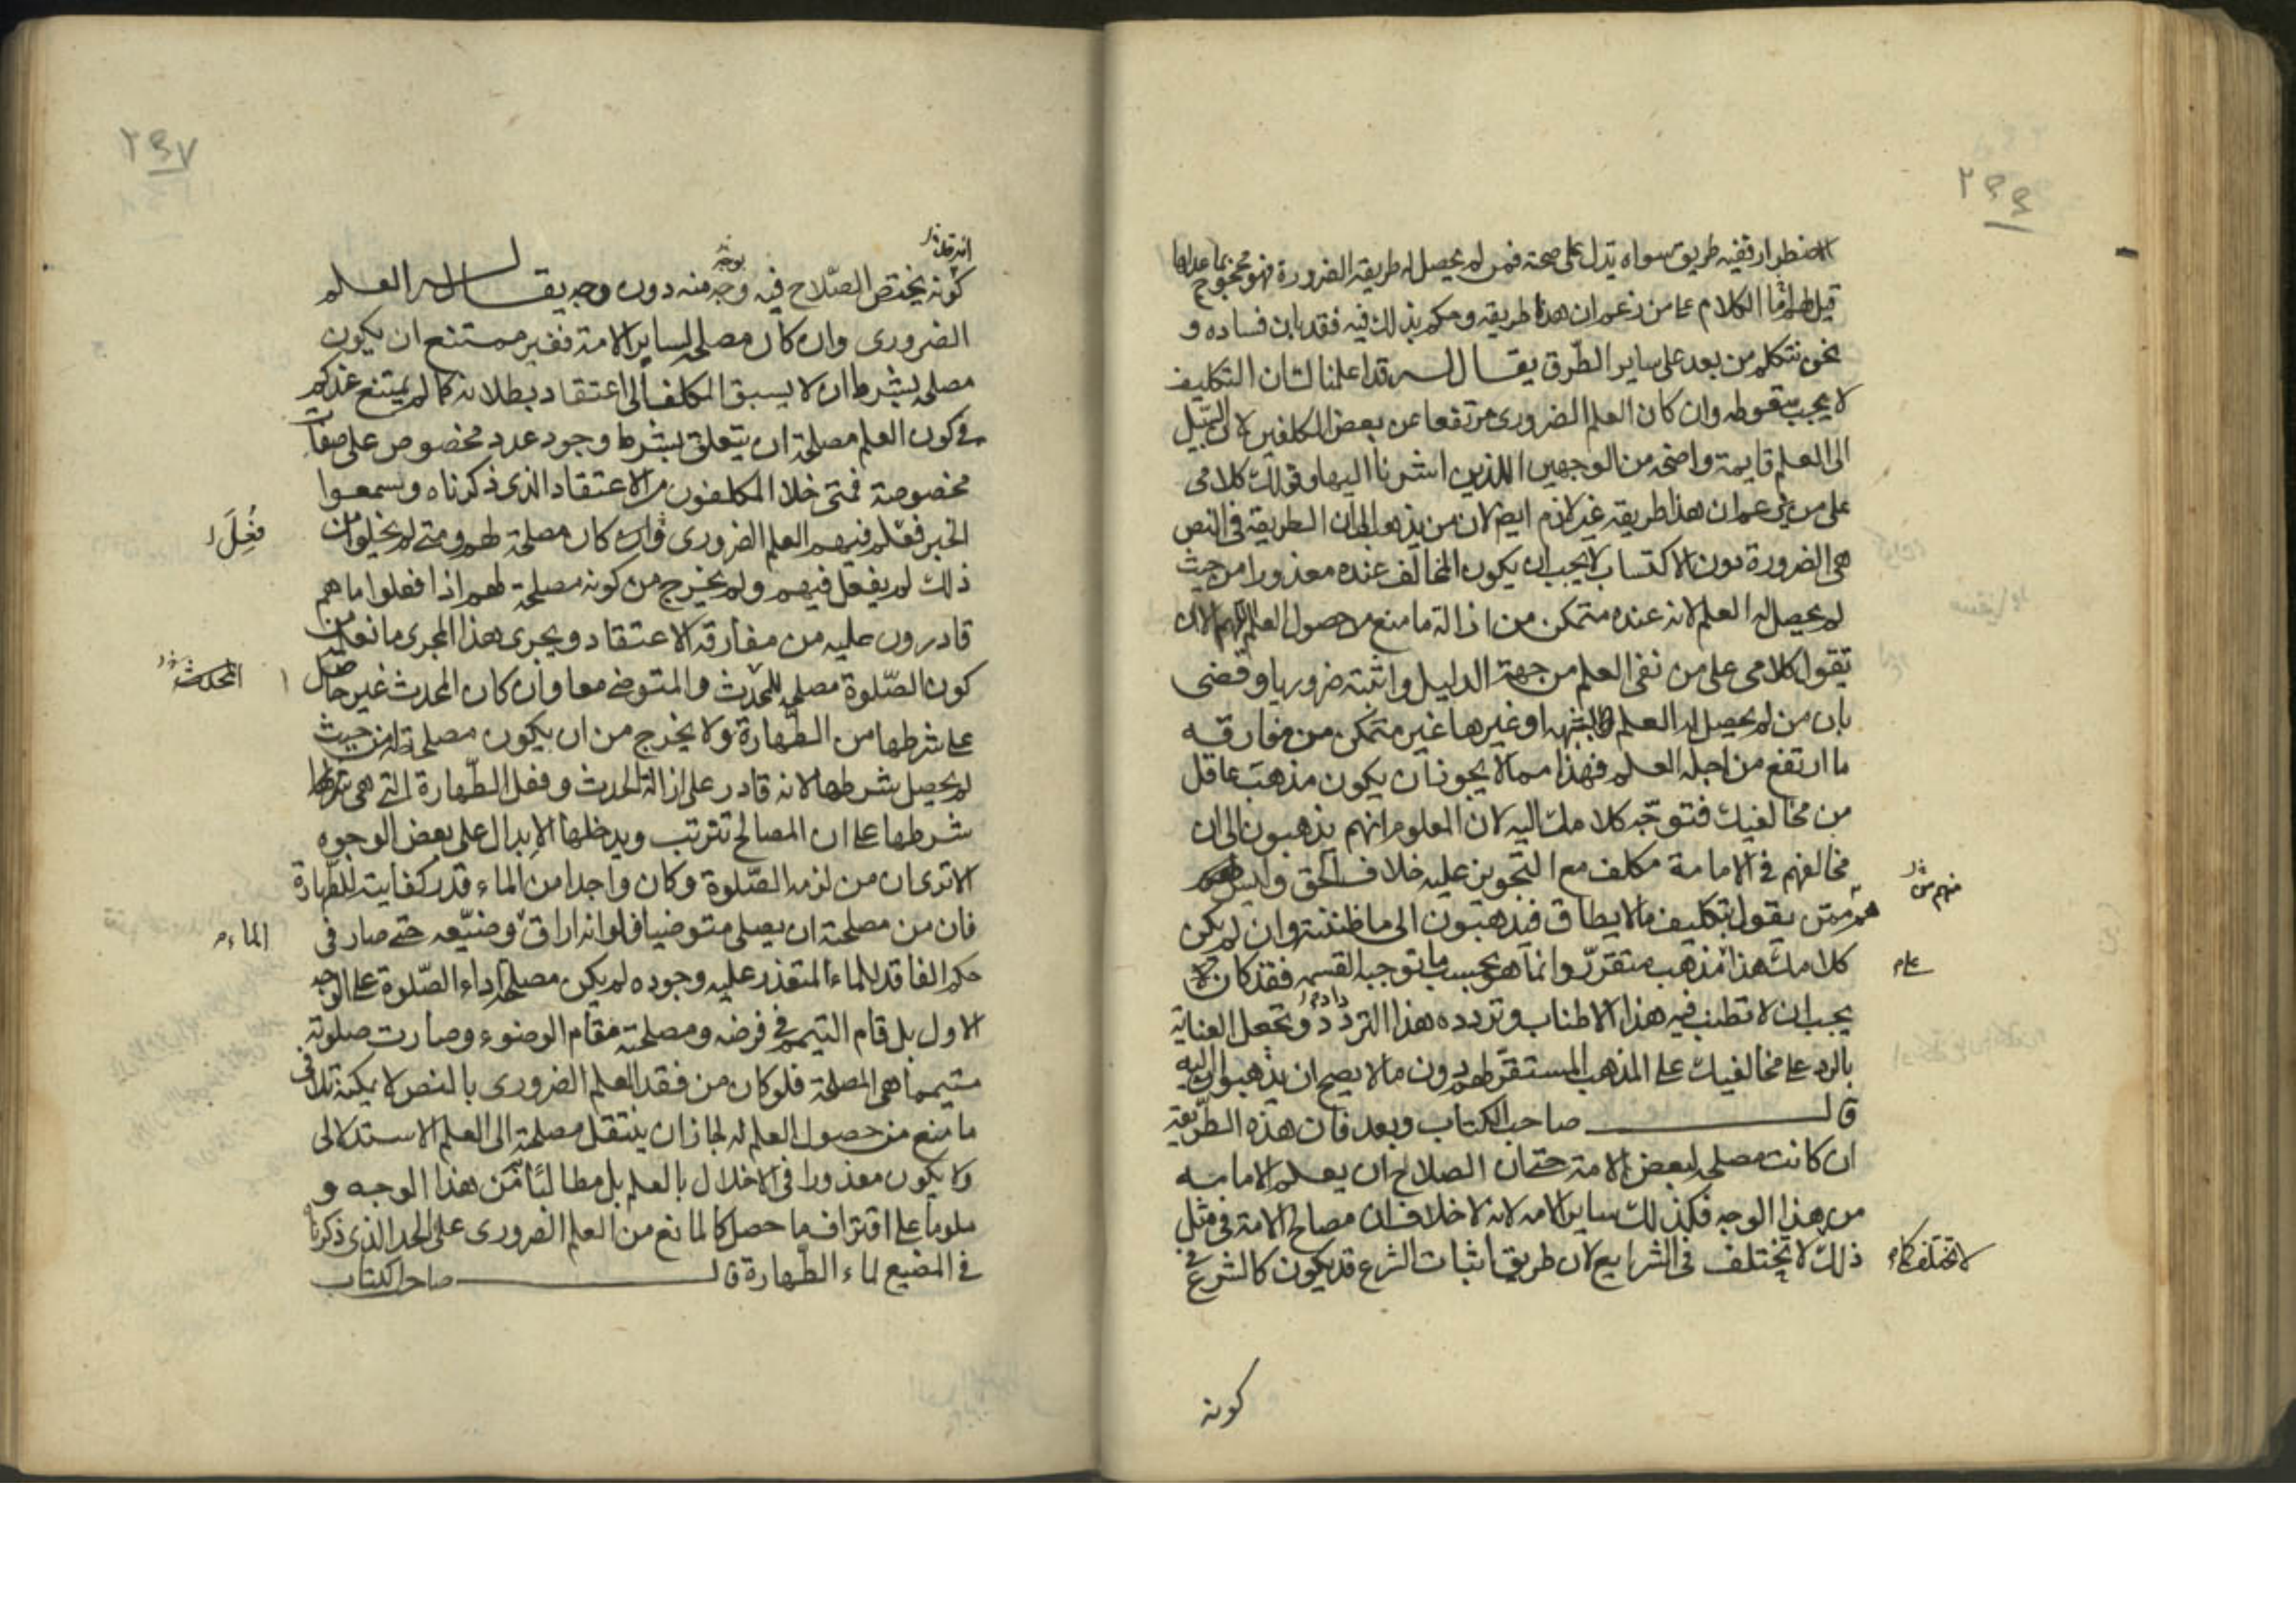 ٢٤٦
الاضطرار ففيه طريق سواه يدل على صحته فمن لم يحصل له طريقة الضرورة فهو محجوج بما عداها
قيل لهم اما الكلام على من زعم ان هذا طريقه وحكم بذلك فيه فقد بان فساده و
نحن نتكلم من بعد على ساير الطرق يقال له قد اعلمنا لشان التكليف
لا يجب سقوطه وان كان العلم الضروري مرتفعا عن بعض المكلفين لان السبيل
الى العلم قايمة واضحة من الوجهين اللذين اشرنا اليها وقولك كلامى
على من يزعم ان هذا طريقه غير لازم ايضا لان من يذهب الى ان الطريقة في النص
هي الضرورة دون الاكتساب لا يجب ان يكون المخالف عنده معذورا من حيث
لم يحصل له العلم لانه عنده متمكن من ازالة ما منع من حصول العلم اللهم الا ان
تقول كلامى على من نفى العلم من جهة الدليل واثبته ضروريا وقضى
بان من لم يحصل له العلم لشبهة او غيرها غير متمكن من مفارقة
ما ارتفع من اجله العلم فهذا مما لا يجوز ان يكون مذهب عاقل
من مخالفيك فتوجه كلامك اليه لان المعلوم انهم يذهبون الى ان
مخالفهم في الامامة مكلف مع التجويز عليه خلاف الحق وليس
هم ممن يقول بتكليف ما لا يطاق فيذهبون الى ما ظننته وان لم يكن
منهم من
كلامك هذا مذهب متقرر وانما هو بحسب ما توجبه القسمة فقد كان لا
على م
يجب ان لا تطنب فيه هذا الاطناب وتردده هذا الترداد وتجعل العناية
بالرد على مخالفيك على المذهب المستقر لهم دون ما لا يصح ان يذهبوا اليه
قال صاحب الكتاب وبعد فان هذه الطريقة
ان كانت مصلحة لبعض الامة حتى ان الصلاح ان يعلم الامامة
من هذا الوجه فكذلك ساير الامه لانه لا خلاف ان مصالح الامة في مثل
ذلك لا يختلف في الشرايع لان طريق اثبات الشرع قد يكون كالشرع في
لا تختلف كما م
كونه
٢٤٧
كونه يختص الصلاح فيه وجه منه دون وجه يقال له العلم
الضروري وان كان مصلحة لساير الامة فغير ممتنع ان يكون
مصلحة بشرط ان لا يسبق المكلف الى اعتقاد بطلانه كما لم يمتنع عندكم
في كون العلم مصلحة ان يتعلق بشرط وجود عدد مخصوص على صفات
مخصوصة فمتى خلا المكلفون من الاعتقاد الذي ذكرناه وسمعوا
الخبر فعلم فيهم العلم الضروري وان كان مصلحة لهم ومتى لم يخلوا من
فُعِلَ
ذلك لم يفعل فيهم ولم يخرج من كونه مصلحة لهم اذا فعلوا ما هم
قادرون عليه من مفارقة الاعتقاد ويجرى هذا المجرى ما نعلمه من
كون الصلوة مصلحة للمحدث والمتوضي معا وان كان المحدث غير حاصل
المحدث
على شرطها من الطهارة ولا يخرج من ان يكون مصلحة له من حيث
لم يحصل شرطها لانه قادر على ازالة الحدث وفعل الطهارة التي هي
شرطها على ان المصالح تترتب ويدخلها الابدال على بعض الوجوه
الا ترى ان من لزمه الصلوة وكان واجدا من الماء قدر كفايته للطهارة
فان من مصلحته ان يصلي متوضيا فلو انه اراق وضيعه حتى صار في
الماء م
حكم الفاقد للماء المتعذر عليه وجوده لم يكن مصلحته اداء الصلوة على الوجه
الاول بل قام التيمم في فرضه ومصلحته مقام الوضوء وصارت صلوته
متيمما هي المصلحة فلو كان من فقد العلم الضروري بالنص لا يمكنه تلافي
ما منع من حصول العلم له لجاز ان ينتقل مصلحته الى العلم الاستدلالى
ولا يكون معذورا في الاخلال بالعلم بل مطالبا من هذا الوجه و
ملوما على اقتراف ما حصل كالمانع من العلم الضروري على الحد الذي ذكرناه
في المضيع لماء الطهارة قال صاحب الكتاب